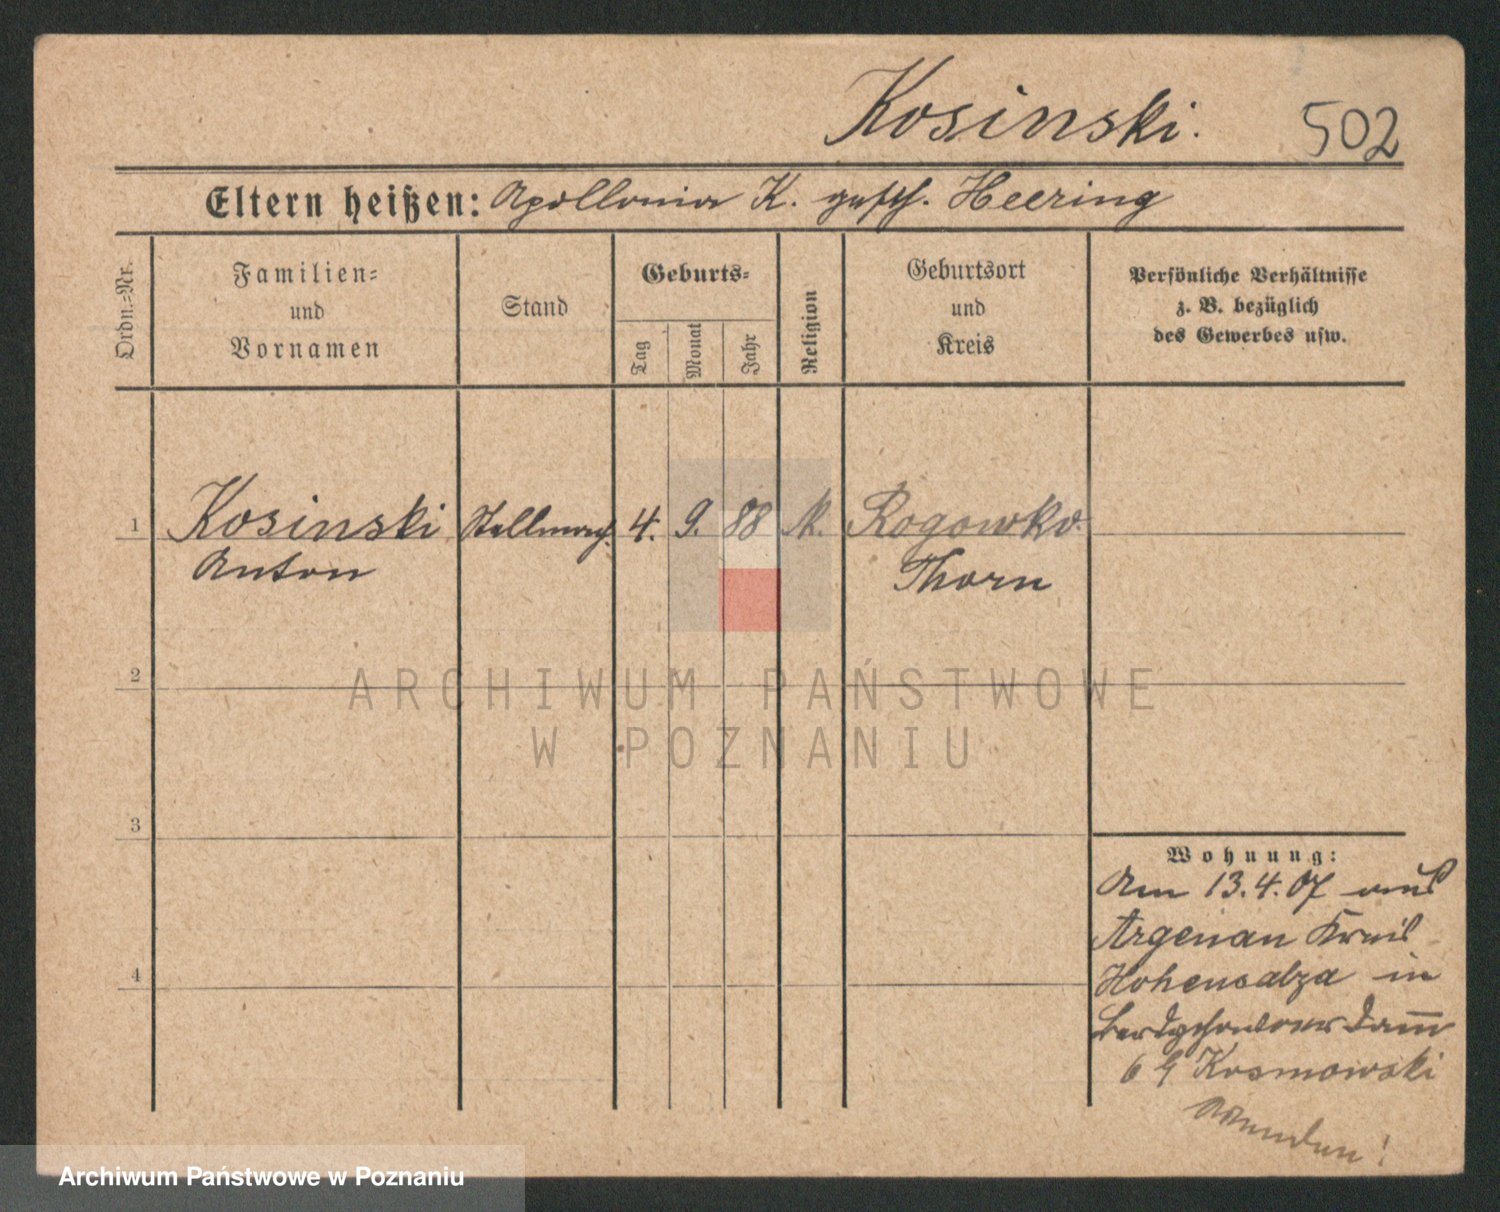 Kosinski.
502
Eltern heißen: Apollonia K. gesch. Heering
Ordn.=Nr.
Familien=
und
Vornamen
Stand
Geburts=
Tag
Monat
Jahr
Religion
Geburtsort
und
Kreis
Persönliche Verhältnisse
z. B. bezüglich
des Gewerbes usw.
1 Kosinski Stellmach. 4. 9. 88 K. Rogowko
Anton Thorn
2
ARCHIWUM PAŃSTWOWE
W POZNANIU
3
Wohnung:
Am 13.4.07 aus
Argenau Kreis
Hohensalza in
Damm
6 Kosmowski
4
Wenden!
Archiwum Państwowe w Poznaniu